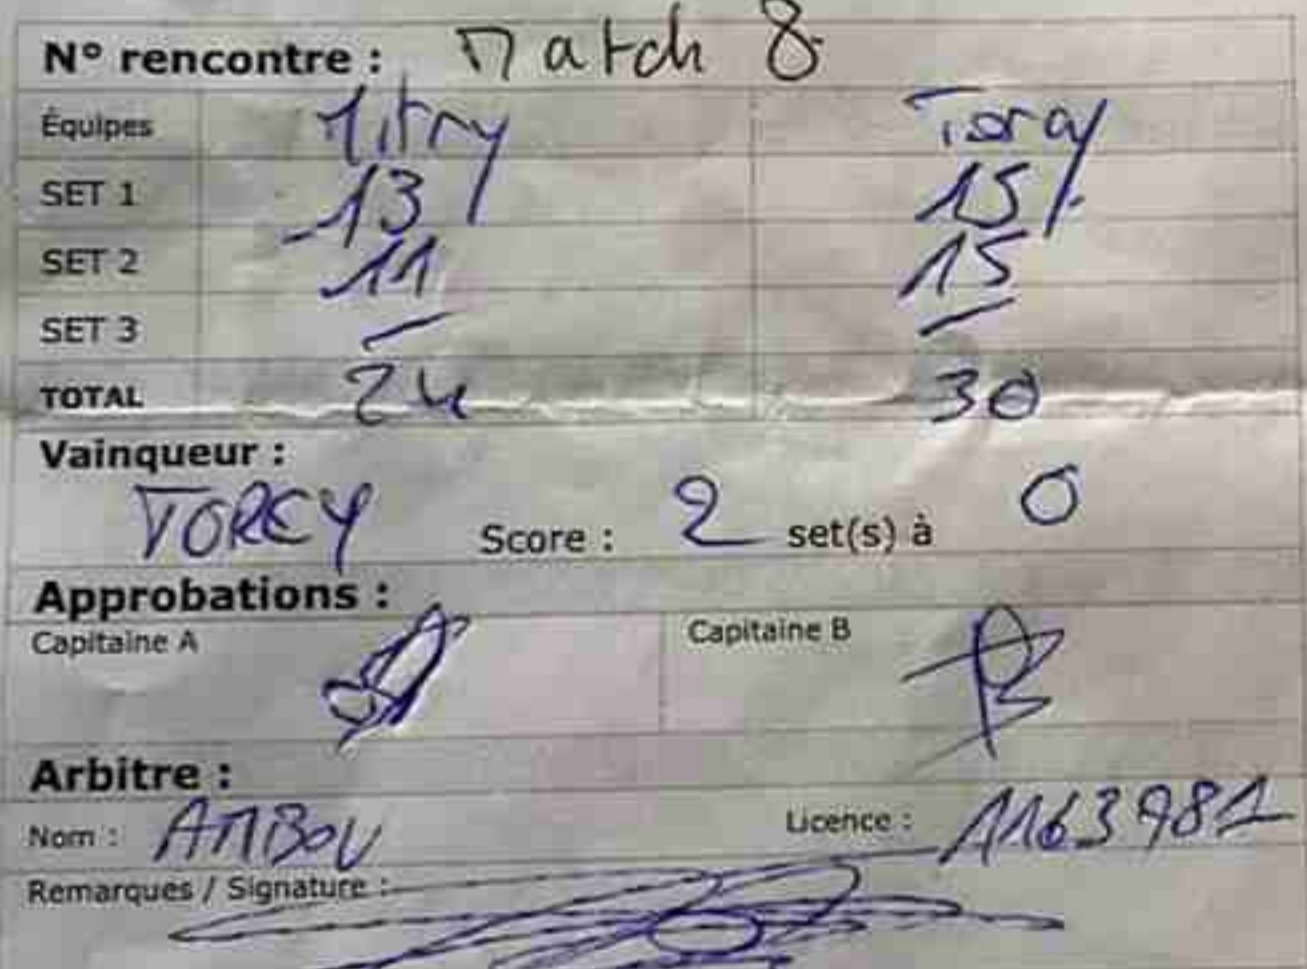 N° rencontre : Match 8
Équipes Torcy
SET 1 13 15
SET 2 11 15
SET 3 — —
TOTAL 24 30
Vainqueur :
TORCY Score : 2 set(s) à 0
Approbations :
Capitaine A Capitaine B
Arbitre :
Nom : AMBOU Licence :
Remarques / Signature :